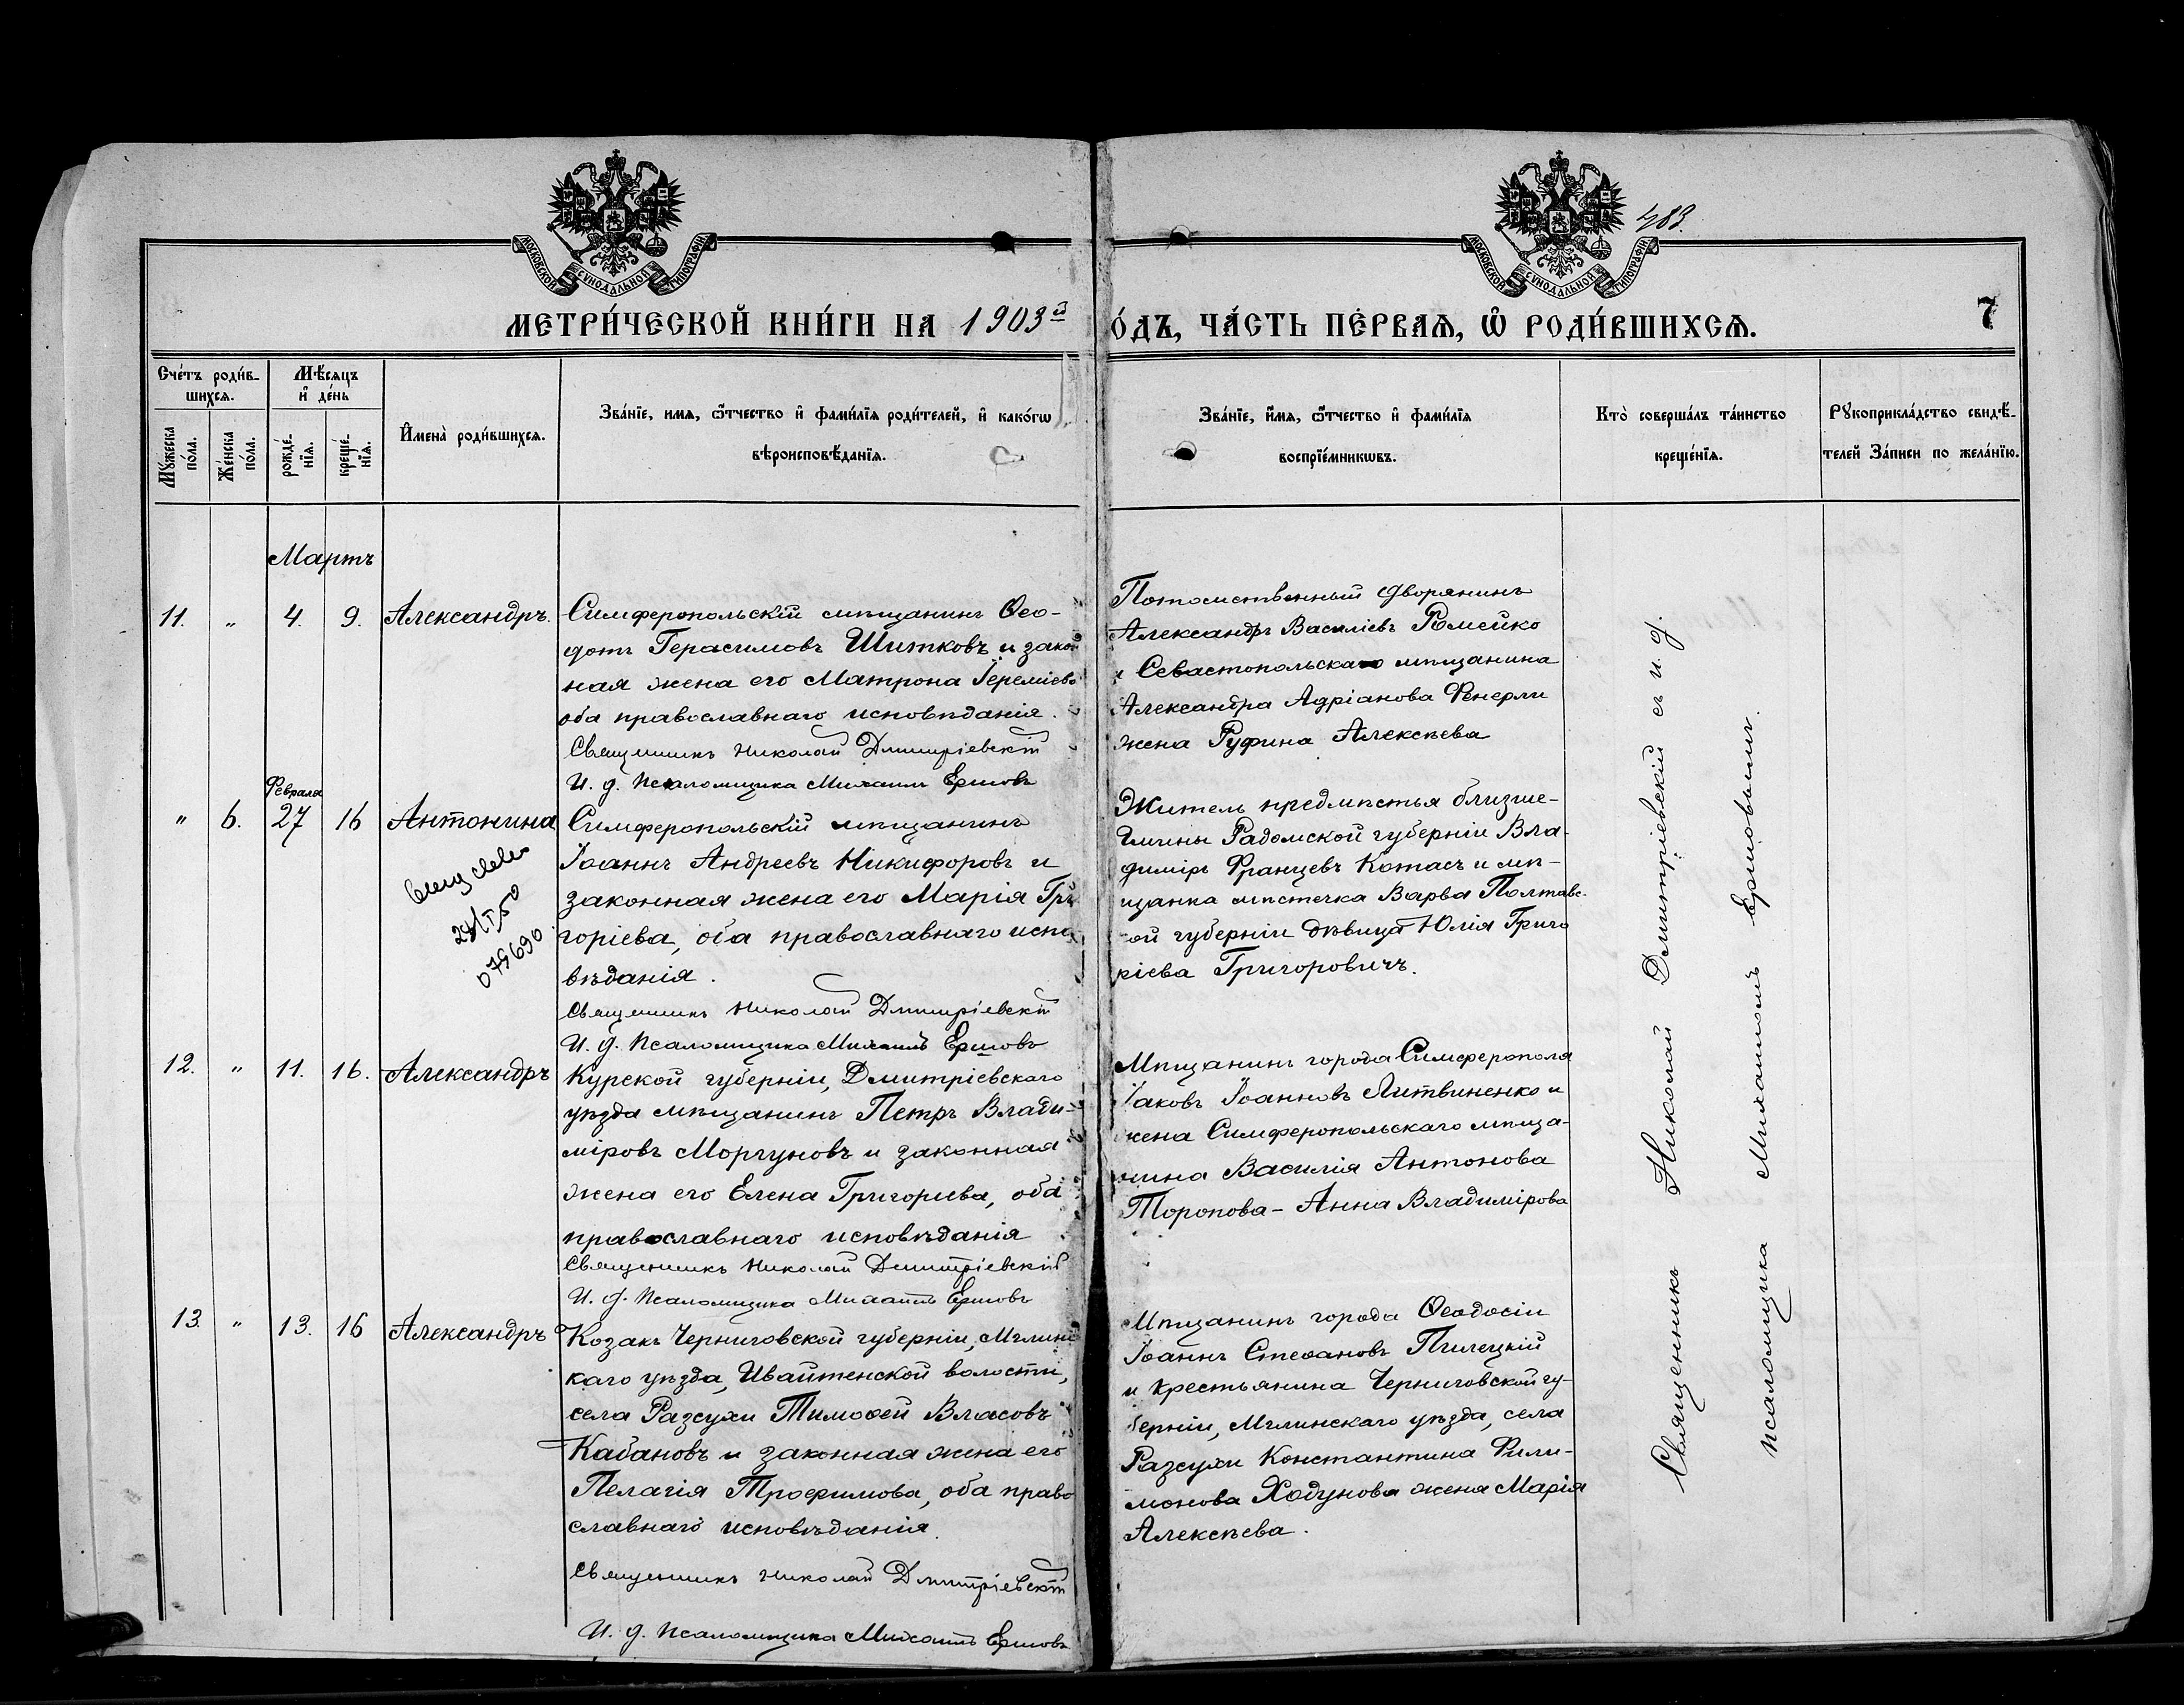 МОСКОВСКОЙ СУНОДАЛЬНОЙ ТИПОГРАФІИ
МОСКОВСКОЙ СУНОДАЛЬНОЙ ТИПОГРАФІИ
483.
МЕТРИ́ЧЕСКОЙ КНИ́ГИ НА 1903й
О́ДЪ, ЧА́СТЬ ПЕ́РВАѦ, Ѡ҆ РОДИ́ВШИХСѦ.
7
Сче́тъ роди́в-
шихсѧ.
Му́жеска
по́ла.
Же́нска
по́ла.
Мѣ́сѧцъ
и҆ де́нь
рожде́-
нїѧ.
креще́-
нїѧ.
И҆мена̀ роди́вшихсѧ.
Зва́нїе, имѧ, ѻ҆́тчество и҆ фами́лїѧ роди́телей, и҆ како́гѡ
вѣроисповѣ́данїѧ.
Зва́нїе, и҆́мѧ, ѻ҆́тчество и҆ фами́лїѧ
воспрїе́мникѡвъ.
Кто̀ соверша́лъ та́инство
креще́нїѧ.
Рꙋкоприкла́дство свидѣ́-
телей За́писи по жела́нїю.
Мартъ
11. " 4. 9. Александръ.
Симферопольскій мѣщанинъ Ѳео-
дотъ Герасимовъ Шитковъ и закон
ная жена его Матрона Іереміева
оба православнаго исповѣданія.
Священникъ Николай Дмитріевскій
И. д. Псаломщика Михаилъ Ершовъ
Потомственный дворянинъ
Александръ Василіевъ Ромейко
и Севастопольскаго мѣщанина
Александра Адріанова Фенерли
жена Руфина Алексѣева
Февраля
" 6. 27 16 Антонина
24/I 50
079690
Симферопольскій мѣщанинъ
Іоаннъ Андреевъ Никифоровъ и
законная жена его Марія Гри
горіева, оба православнаго испо
вѣданія.
Священникъ Николай Дмитріевскій
И. д. Псаломщика Михаилъ Ершовъ
Житель предмѣстья
Радомской губерніи Вла-
диміръ Францевъ Котасъ и мѣ-
щанка мѣстечка Варва Полтавс-
кой губерніи дѣвица Юлія Григо
ріева Григоровичъ.
12. " 11. 16. Александръ
Курской губерніи, Дмитріевскаго
уѣзда мѣщанинъ Петръ Влади-
міровъ Моргуновъ и законная
жена его Елена Григорiева, оба
православнаго исповѣданія
Священникъ Николай Дмитріевскій
И. д. Псаломщика Михаилъ Ершовъ
Мѣщанинъ города Симферополя
Іаковъ Іоанновъ Литвиненко и
жена Симферопольскаго мѣща-
нина Василія Антонова
Торопова - Анна Владимірова
13. " 13. 16 Александръ
Козакъ Черниговской губерніи, Мглинс
каго уѣзда, Ивайтенской волости,
села Разсухи Тимоѳей Власовъ
Кабановъ и законная жена его
Пелагія Трофимова, оба право
славнаго исповѣданія.
Священникъ Николай Дмитріевскій
И. д. Псаломщика Михаилъ Ершовъ
Мѣщанинъ города Ѳеодосіи
Іоаннъ Стефановъ Пилецкій
и крестьянина Черниговской гу-
берніи, Мглинскаго уѣзда, села
Разсухи Константина Фили-
монова Ходунова жена Марія
Алексѣева.
Священникъ Николай Дмитріевскій съ и. д.
псаломщика Михаиломъ Ершовымъ.